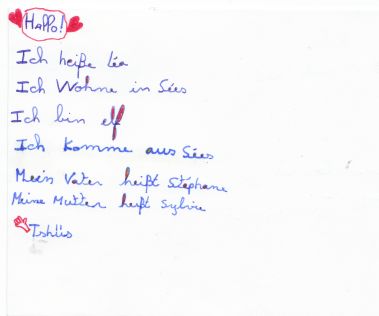 Hallo!
Ich heiße Léa
Ich Wohne in Sées
Ich bin elf
Ich Komme aus Sées
Mein Vater heißt Stéphane
Meine Mutter heißt Sylvie
Tshüs